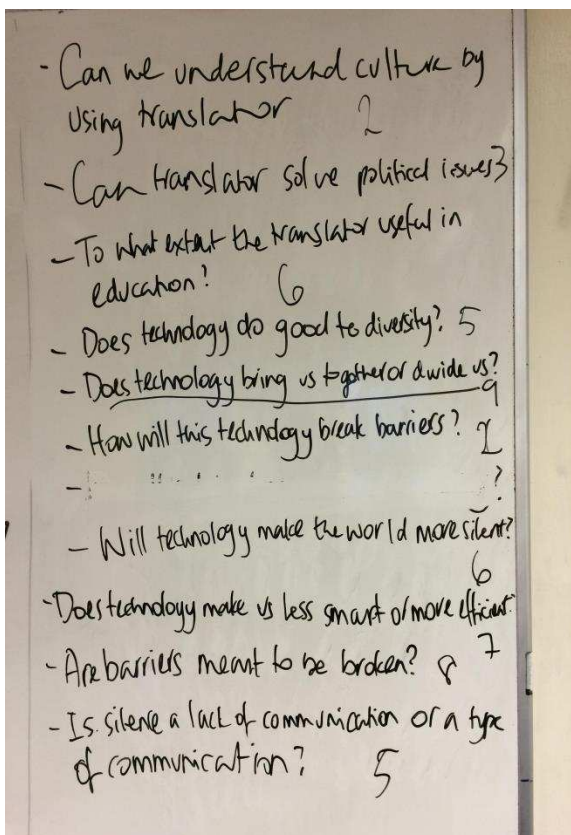 - Can we understand culture by
using translator 2
- Can translator solve political issues 3
- To what extent the translator useful in
education? 6
- Does technology do good to diversity? 5
- Does technology bring us togather or divide us?
9
- How will this technology break barriers? 2
- ?
- Will technology make the world more silent?
6
- Does technology make us less smart or more efficient.
7
- Are barriers meant to be broken? 8
- Is silence a lack of communication or a type
of communication? 5